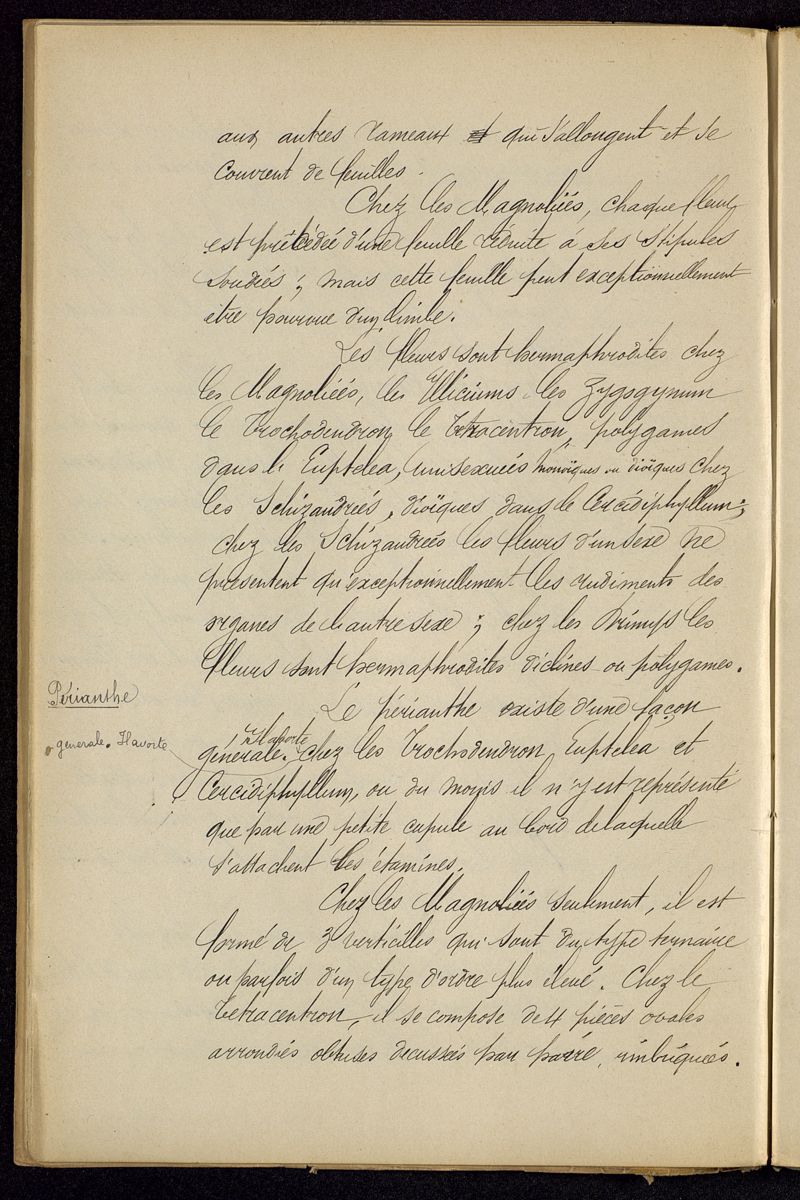 aux autres rameaux et qui s'allongent et se
couvrent de feuilles.
Chez les Magnoliées, chaque fleur
est précédée d'une feuille réduite à ses stipules
soudées ; mais cette feuille peut exceptionnellement
être pourvue d'un limbe.
Les fleurs sont hermaphrodites chez
les Magnoliées, les Illiciums les Zygogynum
le Trochodendron, le Tetracentron, polygames
dans l' Euptelea, unisexuées monoïques ou dioïques chez
les Schizandrées, dioïques dans le Cercidiphyllum ;
chez les Schizandrées les fleurs d'un sexe ne
présentent qu'exceptionnellement les rudiments des
organes de l'autre sexe ; chez les Drimys les
fleurs sont hermaphrodites diclines ou polygames.
Périanthe
Le périanthe existe d'une façon
générale. Il avorte
Il avorte
générale. chez les Trochodendron, Euptelea et
Cercidiphyllum, ou du moins il n'y est représenté
que par une petite cupule au bord de laquelle
s'attachent les étamines.
Chez les Magnoliées seulement, il est
formé de 3 verticilles qui sont du type ternaire
ou parfois d'un type d'ordre plus élevé. Chez le
Tetracentron, il se compose de 4 pièces ovales
arrondies obtuses decussées par paire, imbriquées.